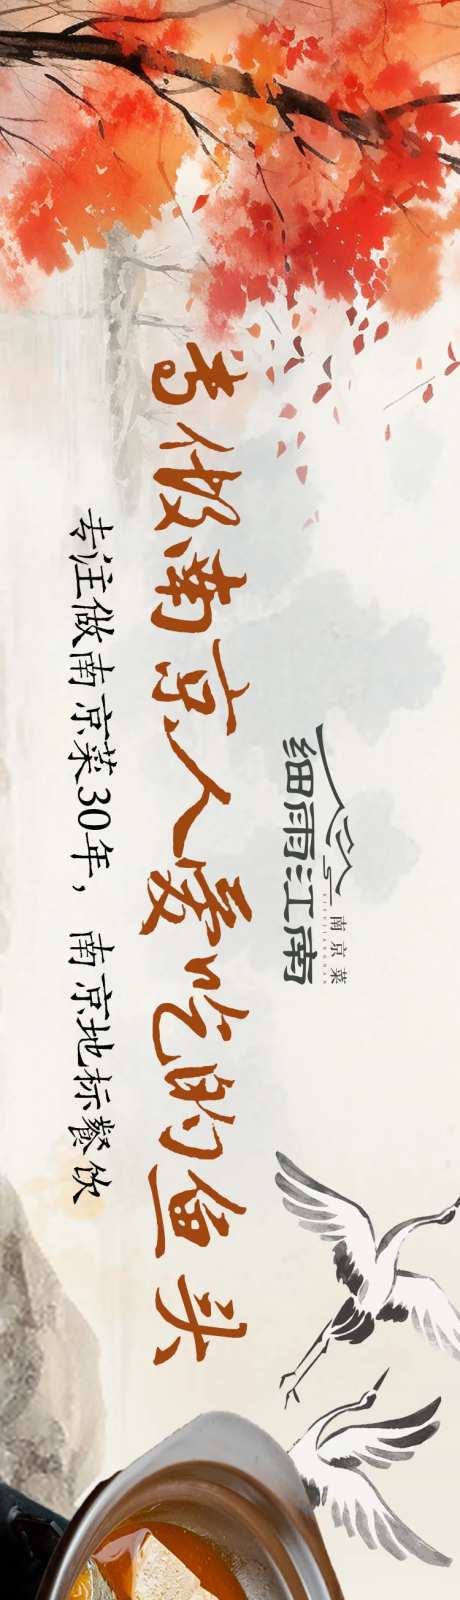 南京菜
细雨江南
专做南京人爱吃的鱼头
专注做南京菜30年，南京地标餐饮